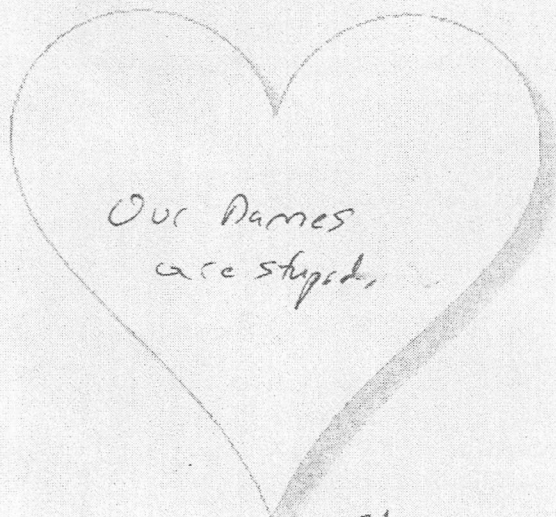 Our names
are stupid.